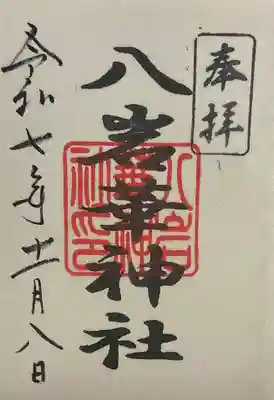 奉拝
八岩華神社
令和七年十一月八日